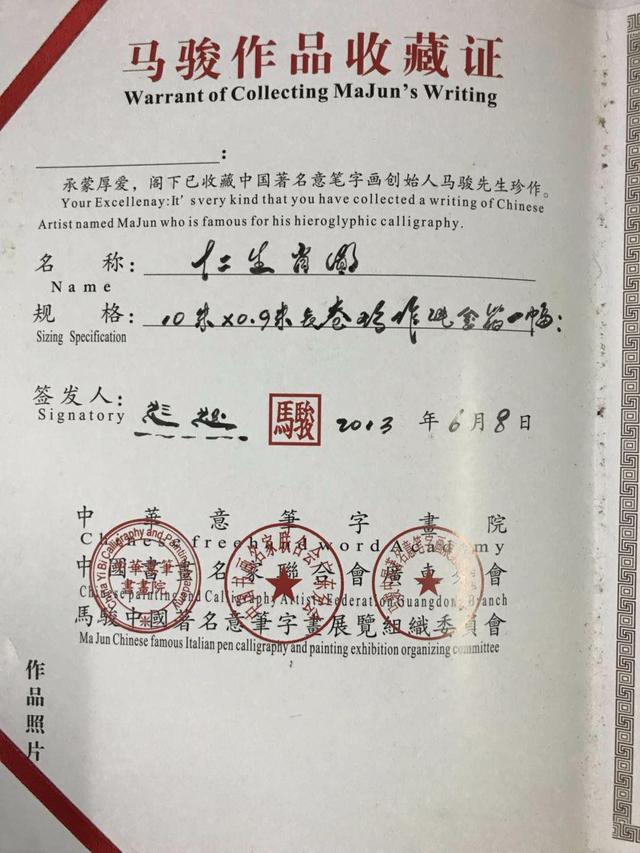 马骏作品收藏证
Warrant of Collecting MaJun's Writing
:
承蒙厚爱，阁下已收藏中国著名意笔字画创始人马骏先生珍作。
Your Excellenay:It's very kind that you have collected a writing of Chinese
Artist named MaJun who is famous for his hieroglyphic calligraphy.
名 称: 十二生肖图
Name
规 格: 10米x0.9米长卷 作 金 一幅;
Sizing Specification
签发人:
Signatory 馬駿 2013 年 6 月 8 日
中華意筆字畫院
Chinese freehand word Academy
中國書畫名家聯合會廣東分會
Chinese painting and Calligraphy Artists Federation Guangdong Branch
馬駿中國著名意筆字畫展覽組織委員會
Ma Jun Chinese famous Italian pen calligraphy and painting exhibition organizing committee
China Yi Bi Calligraphy and Painting Academy
中華意筆
書畫院
作品照片